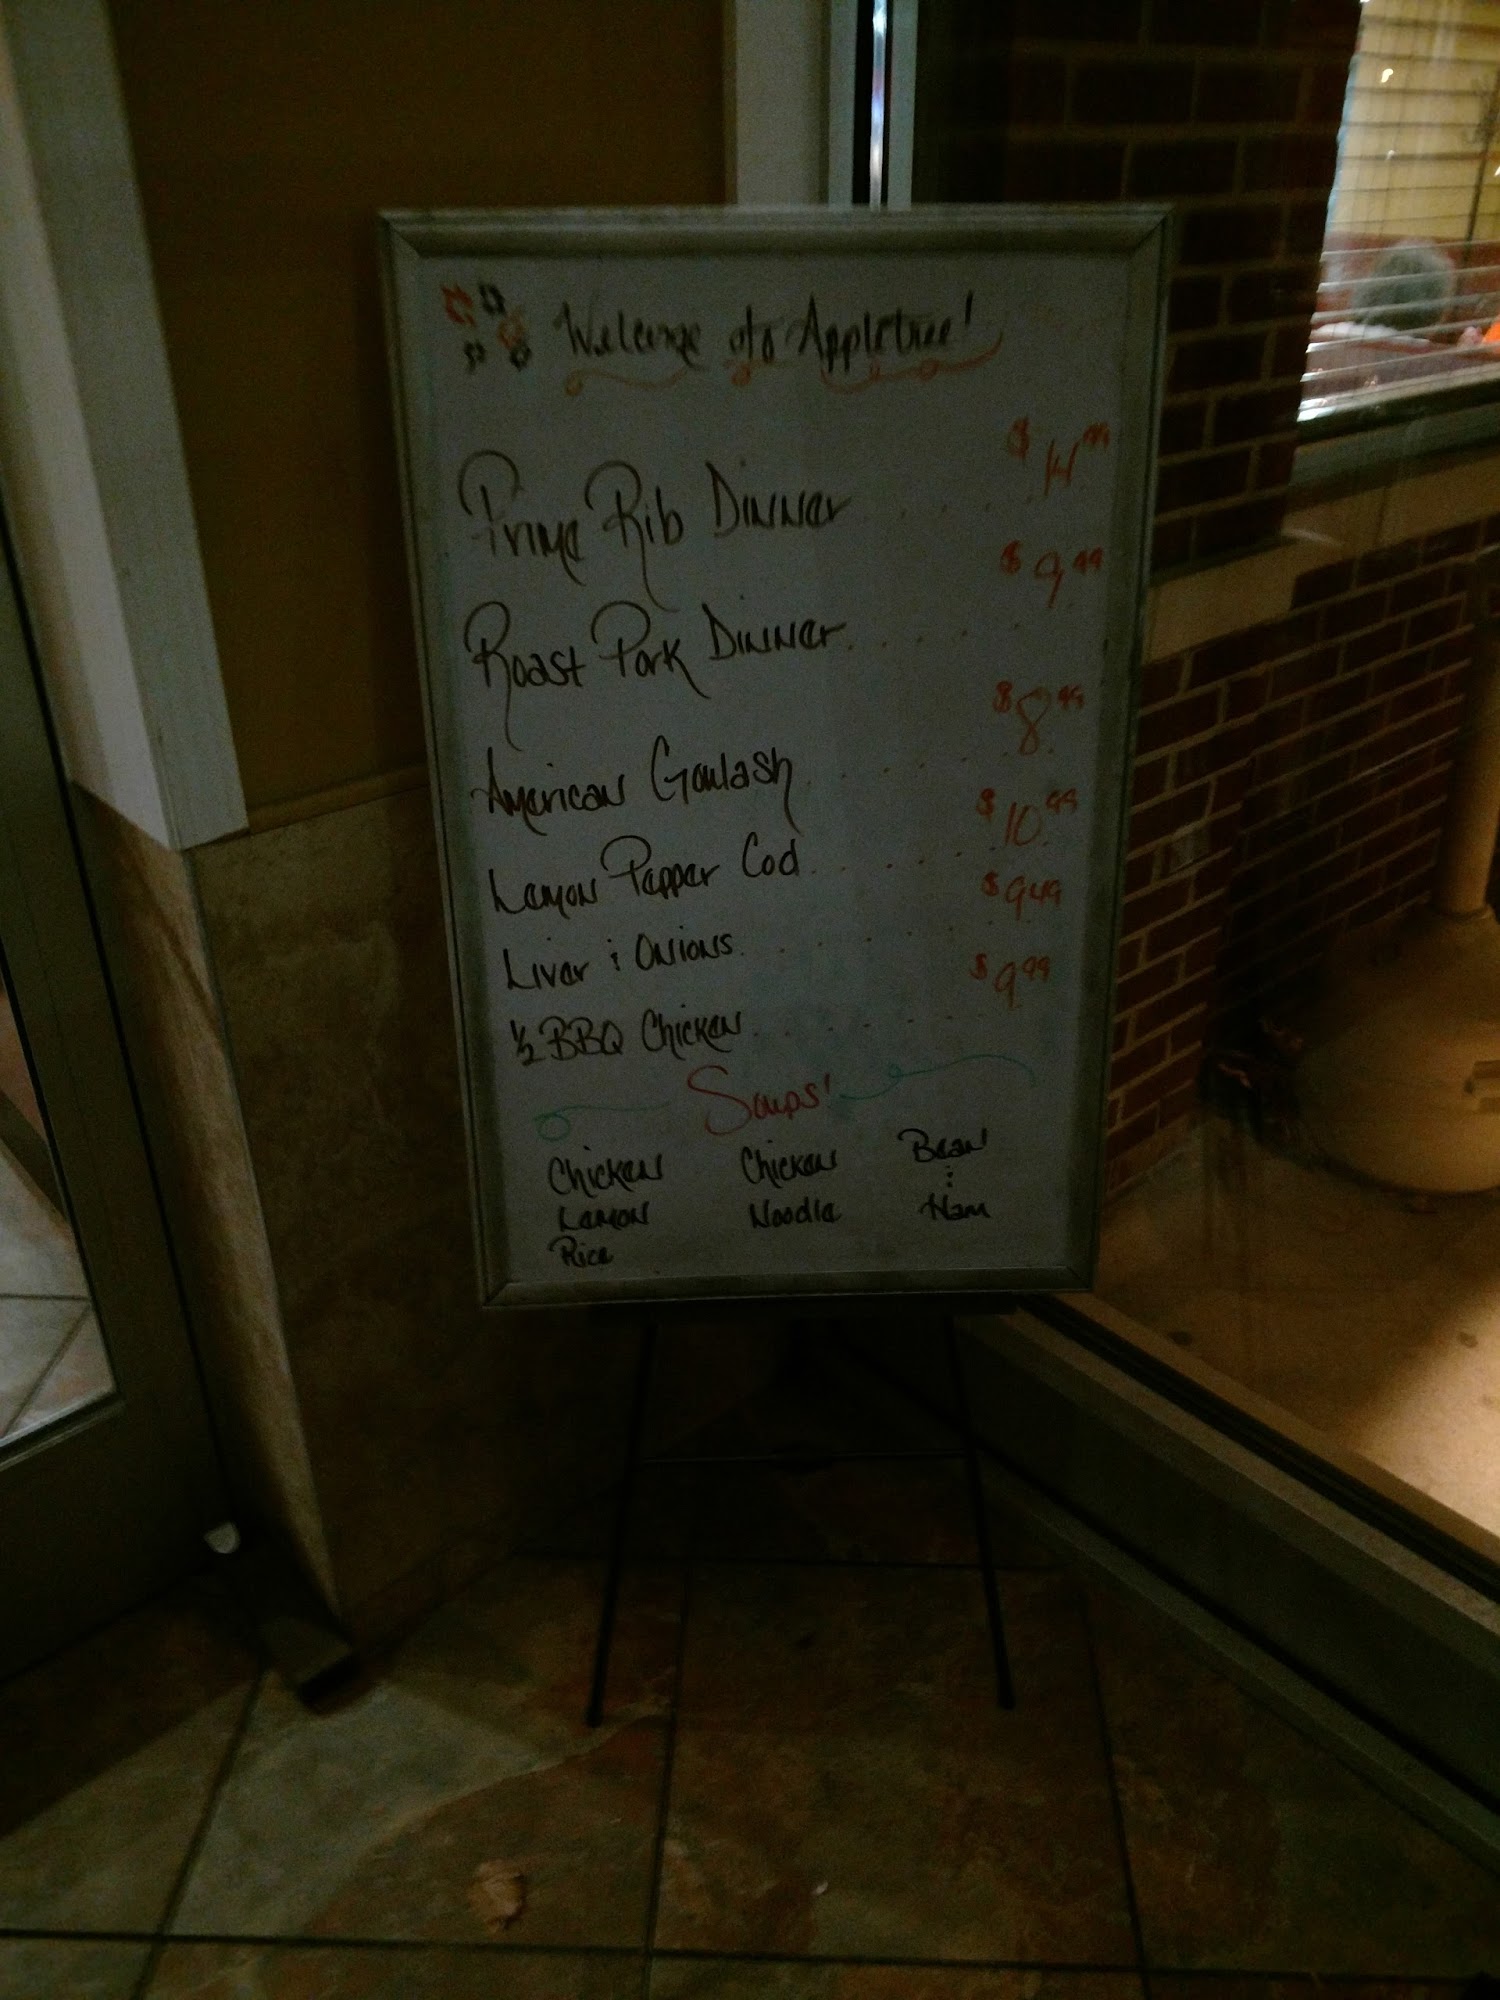 Welcome to Appletree!
Prime Rib Dinner . . . . $14.99
Roast Pork Dinner . . . . . $9.99
American Goulash . . . . . $8.99
Lemon Pepper Cod . . . . . $10.99
Liver & Onions . . . . . . $9.49
½ BBQ Chicken . . . . . . $9.99
Soups!
Chicken Chicken Bean
Lemon Noodle & Ham
Rice